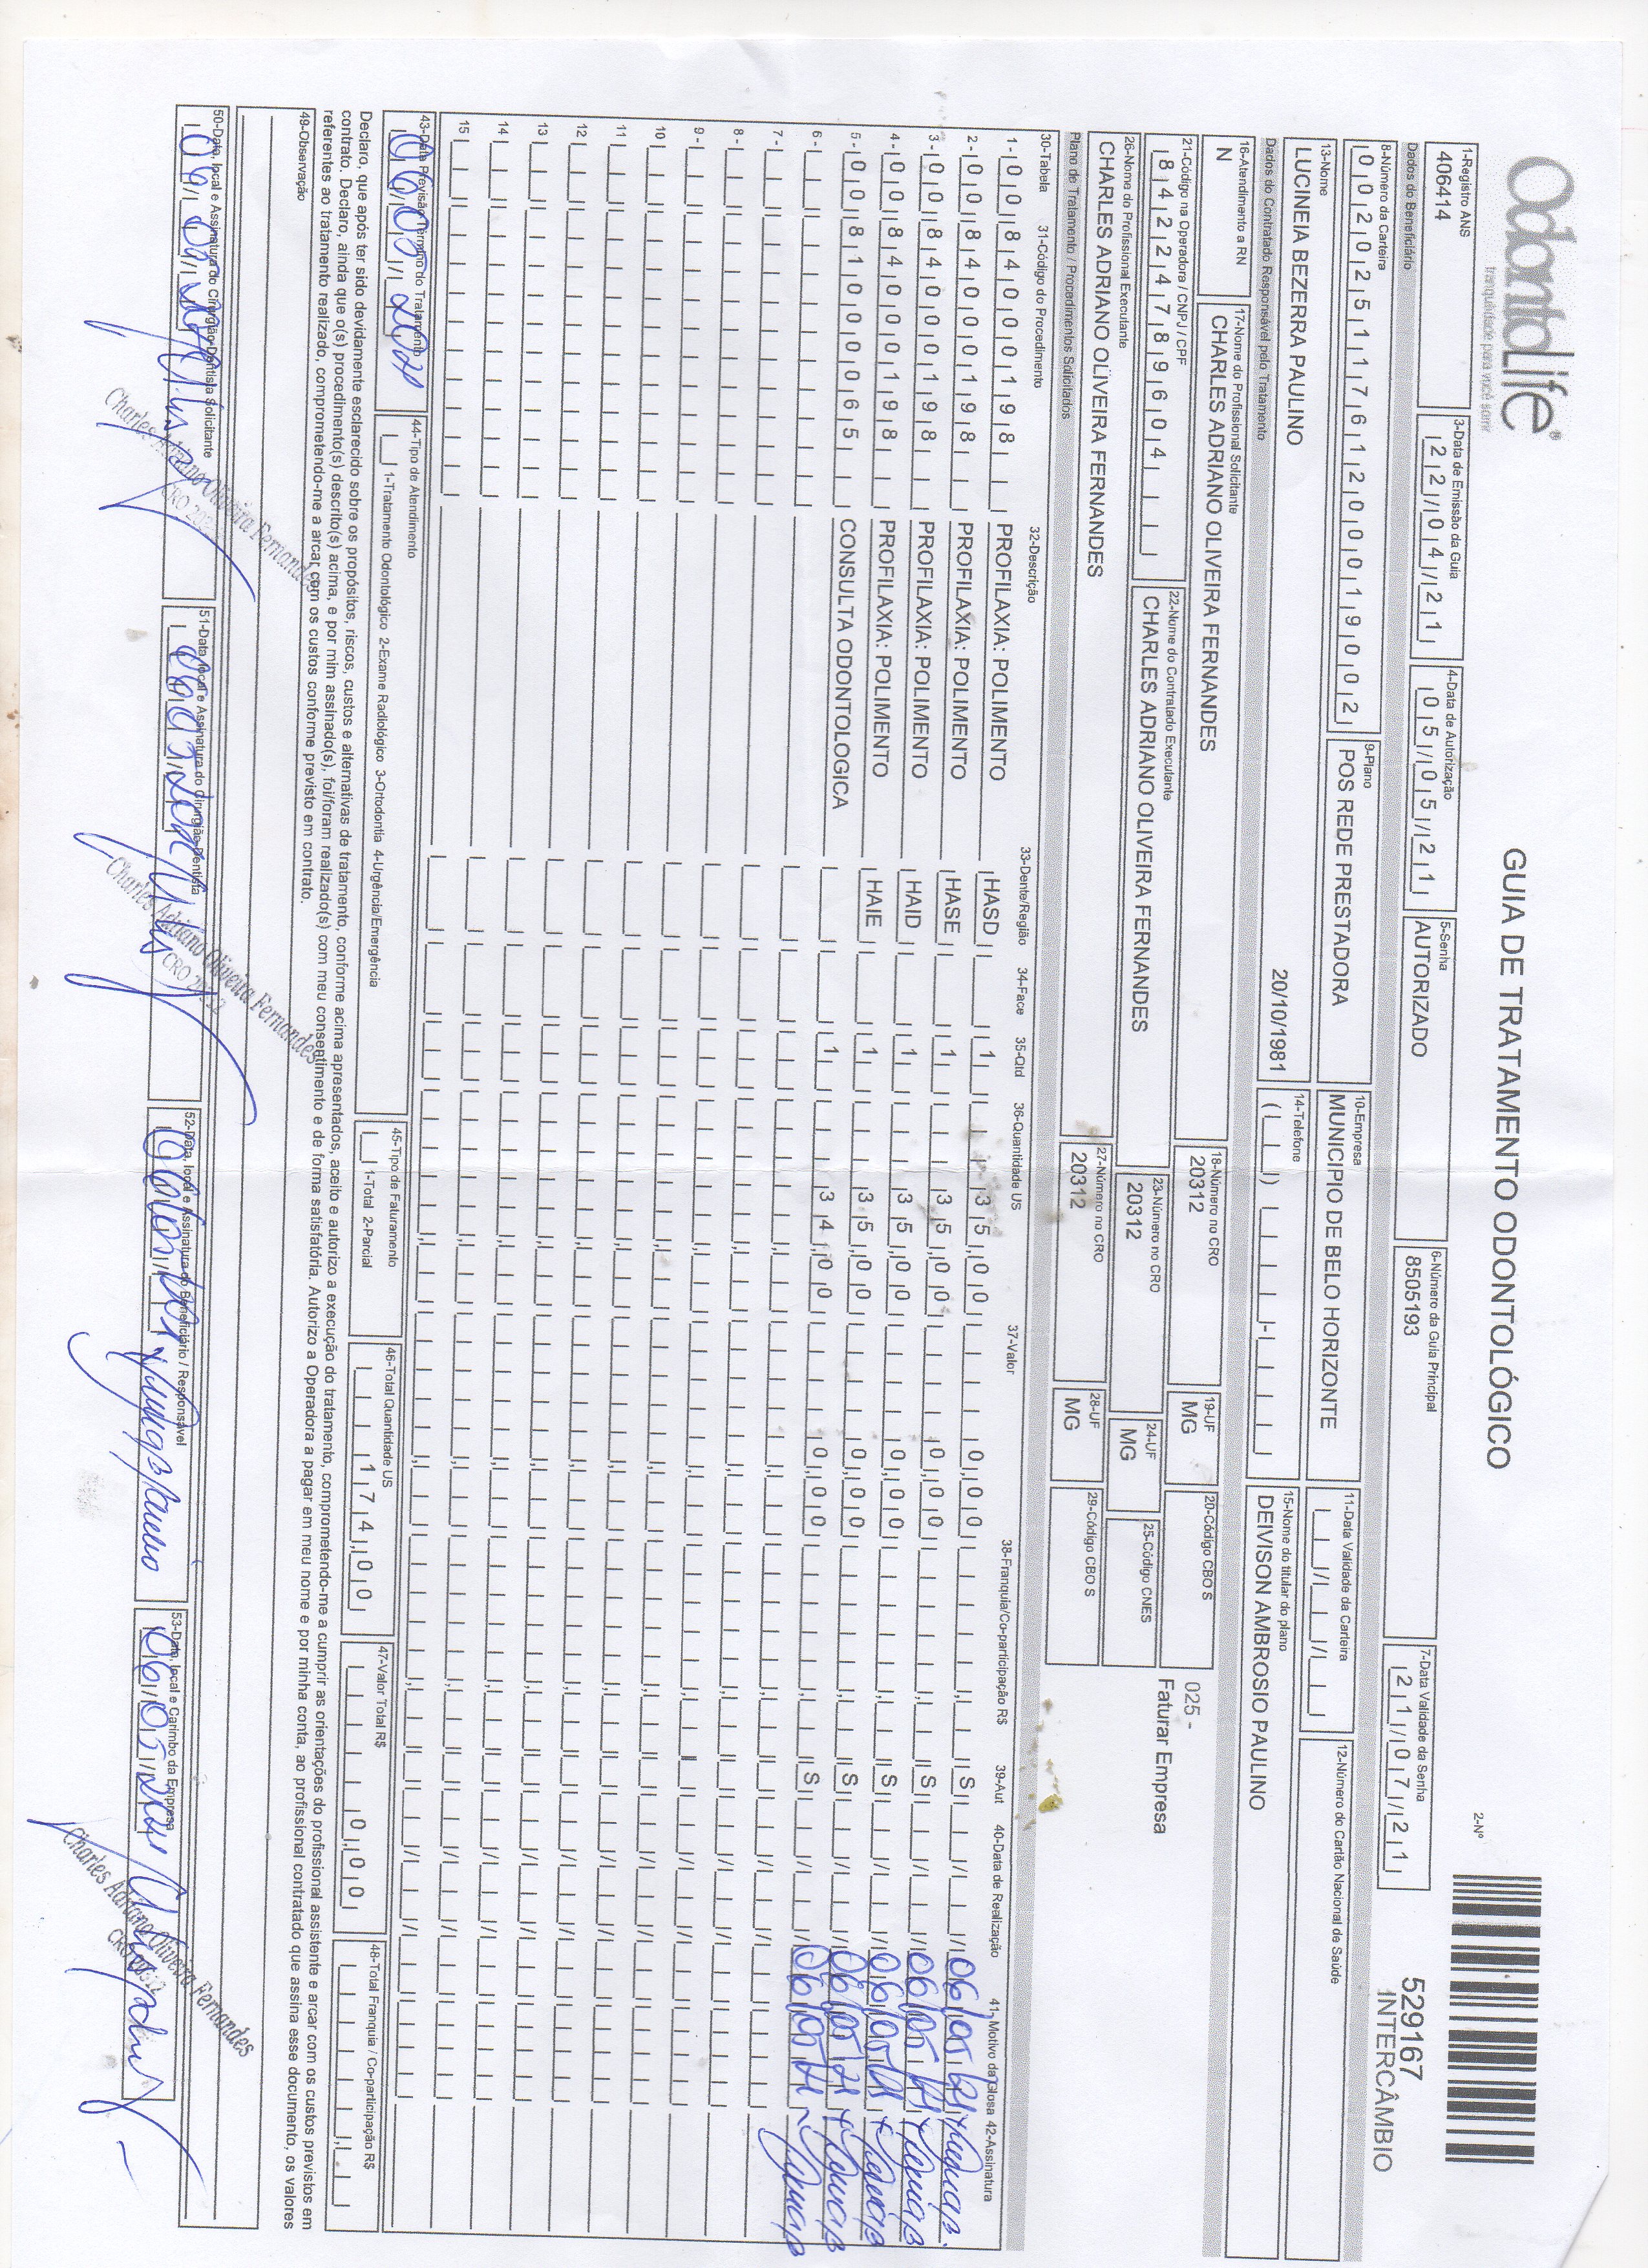 OdontoLife®
tranquilidade para você sorrir
GUIA DE TRATAMENTO ODONTOLÓGICO
2-Nº
529167
INTERCÂMBIO
1-Registro ANS
406414
3-Data de Emissão da Guia
22/04/21
4-Data de Autorização
05/05/21
5-Senha
AUTORIZADO
6-Número da Guia Principal
8505193
7-Data Validade da Senha
21/07/21
Dados do Beneficiário
8-Número da Carteira
00202511761200019002
9-Plano
POS REDE PRESTADORA
10-Empresa
MUNICIPIO DE BELO HORIZONTE
11-Data Validade da Carteira
12-Número do Cartão Nacional de Saúde
13-Nome
LUCINEIA BEZERRA PAULINO
20/10/1981
14-Telefone
15-Nome do titular do plano
DEIVISON AMBROSIO PAULINO
Dados do Contratado Responsável pelo Tratamento
16-Atendimento a RN
N
17-Nome do Profissional Solicitante
CHARLES ADRIANO OLIVEIRA FERNANDES
18-Número no CRO
20312
19-UF
MG
20-Código CBO S
025 -
Faturar Empresa
21-Código na Operadora / CNPJ / CPF
84224789604
22-Nome do Contratado Executante
CHARLES ADRIANO OLIVEIRA FERNANDES
23-Número no CRO
20312
24-UF
MG
25-Código CNES
26-Nome do Profissional Executante
CHARLES ADRIANO OLIVEIRA FERNANDES
27-Número no CRO
20312
28-UF
MG
29-Código CBO S
Plano de Tratamento / Procedimentos Solicitados
30-Tabela 31-Código do Procedimento 32-Descrição 33-Dente/Região 34-Face 35-Qtd 36-Quantidade US 37-Valor 38-Franquia/Co-participação R$ 39-Aut 40-Data de Realização 41-Motivo da Glosa 42-Assinatura
1- 00 84000198 PROFILAXIA: POLIMENTO HASD 1 35,00 0,00 S 06/05/21
2- 00 84000198 PROFILAXIA: POLIMENTO HASE 1 35,00 0,00 S 06/05/21
3- 00 84000198 PROFILAXIA: POLIMENTO HAID 1 35,00 0,00 S 06/05/21
4- 00 84000198 PROFILAXIA: POLIMENTO HAIE 1 35,00 0,00 S 06/05/21
5- 00 81000065 CONSULTA ODONTOLOGICA 1 34,00 0,00 S 06/05/21
6-
7-
8-
9-
10
11
12
13
14
15
43-Data Previsão Término do Tratamento
06/05/2021
44-Tipo de Atendimento
1-Tratamento Odontológico 2-Exame Radiológico 3-Ortodontia 4-Urgência/Emergência
45-Tipo de Faturamento
1-Total 2-Parcial
46-Total Quantidade US
174,00
47-Valor Total R$
0,00
48-Total Franquia / Co-participação R$
Declaro, que após ter sido devidamente esclarecido sobre os propósitos, riscos, custos e alternativas de tratamento, conforme acima apresentados, aceito e autorizo a execução do tratamento, comprometendo-me a cumprir as orientações do profissional assistente e arcar com os custos previstos em
contrato. Declaro, ainda que o(s) procedimento(s) descrito(s) acima, e por mim assinado(s), foi/foram realizado(s) com meu consentimento e de forma satisfatória. Autorizo a Operadora a pagar em meu nome e por minha conta, ao profissional contratado que assina esse documento, os valores
referentes ao tratamento realizado, comprometendo-me a arcar com os custos conforme previsto em contrato.
49-Observação
50-Data, local e Assinatura do Cirurgião-Dentista Solicitante
06/05/2021
Charles Adriano Oliveira Fernandes
CRO 20312
51-Data, local e Assinatura do Cirurgião-Dentista
06/05/2021
Charles Adriano Oliveira Fernandes
CRO 20312
52-Data, local e Assinatura do Beneficiário / Responsável
06/05/2021
53-Data, local e Carimbo da Empresa
06/05/2021
Charles Adriano Oliveira Fernandes
CRO 20312